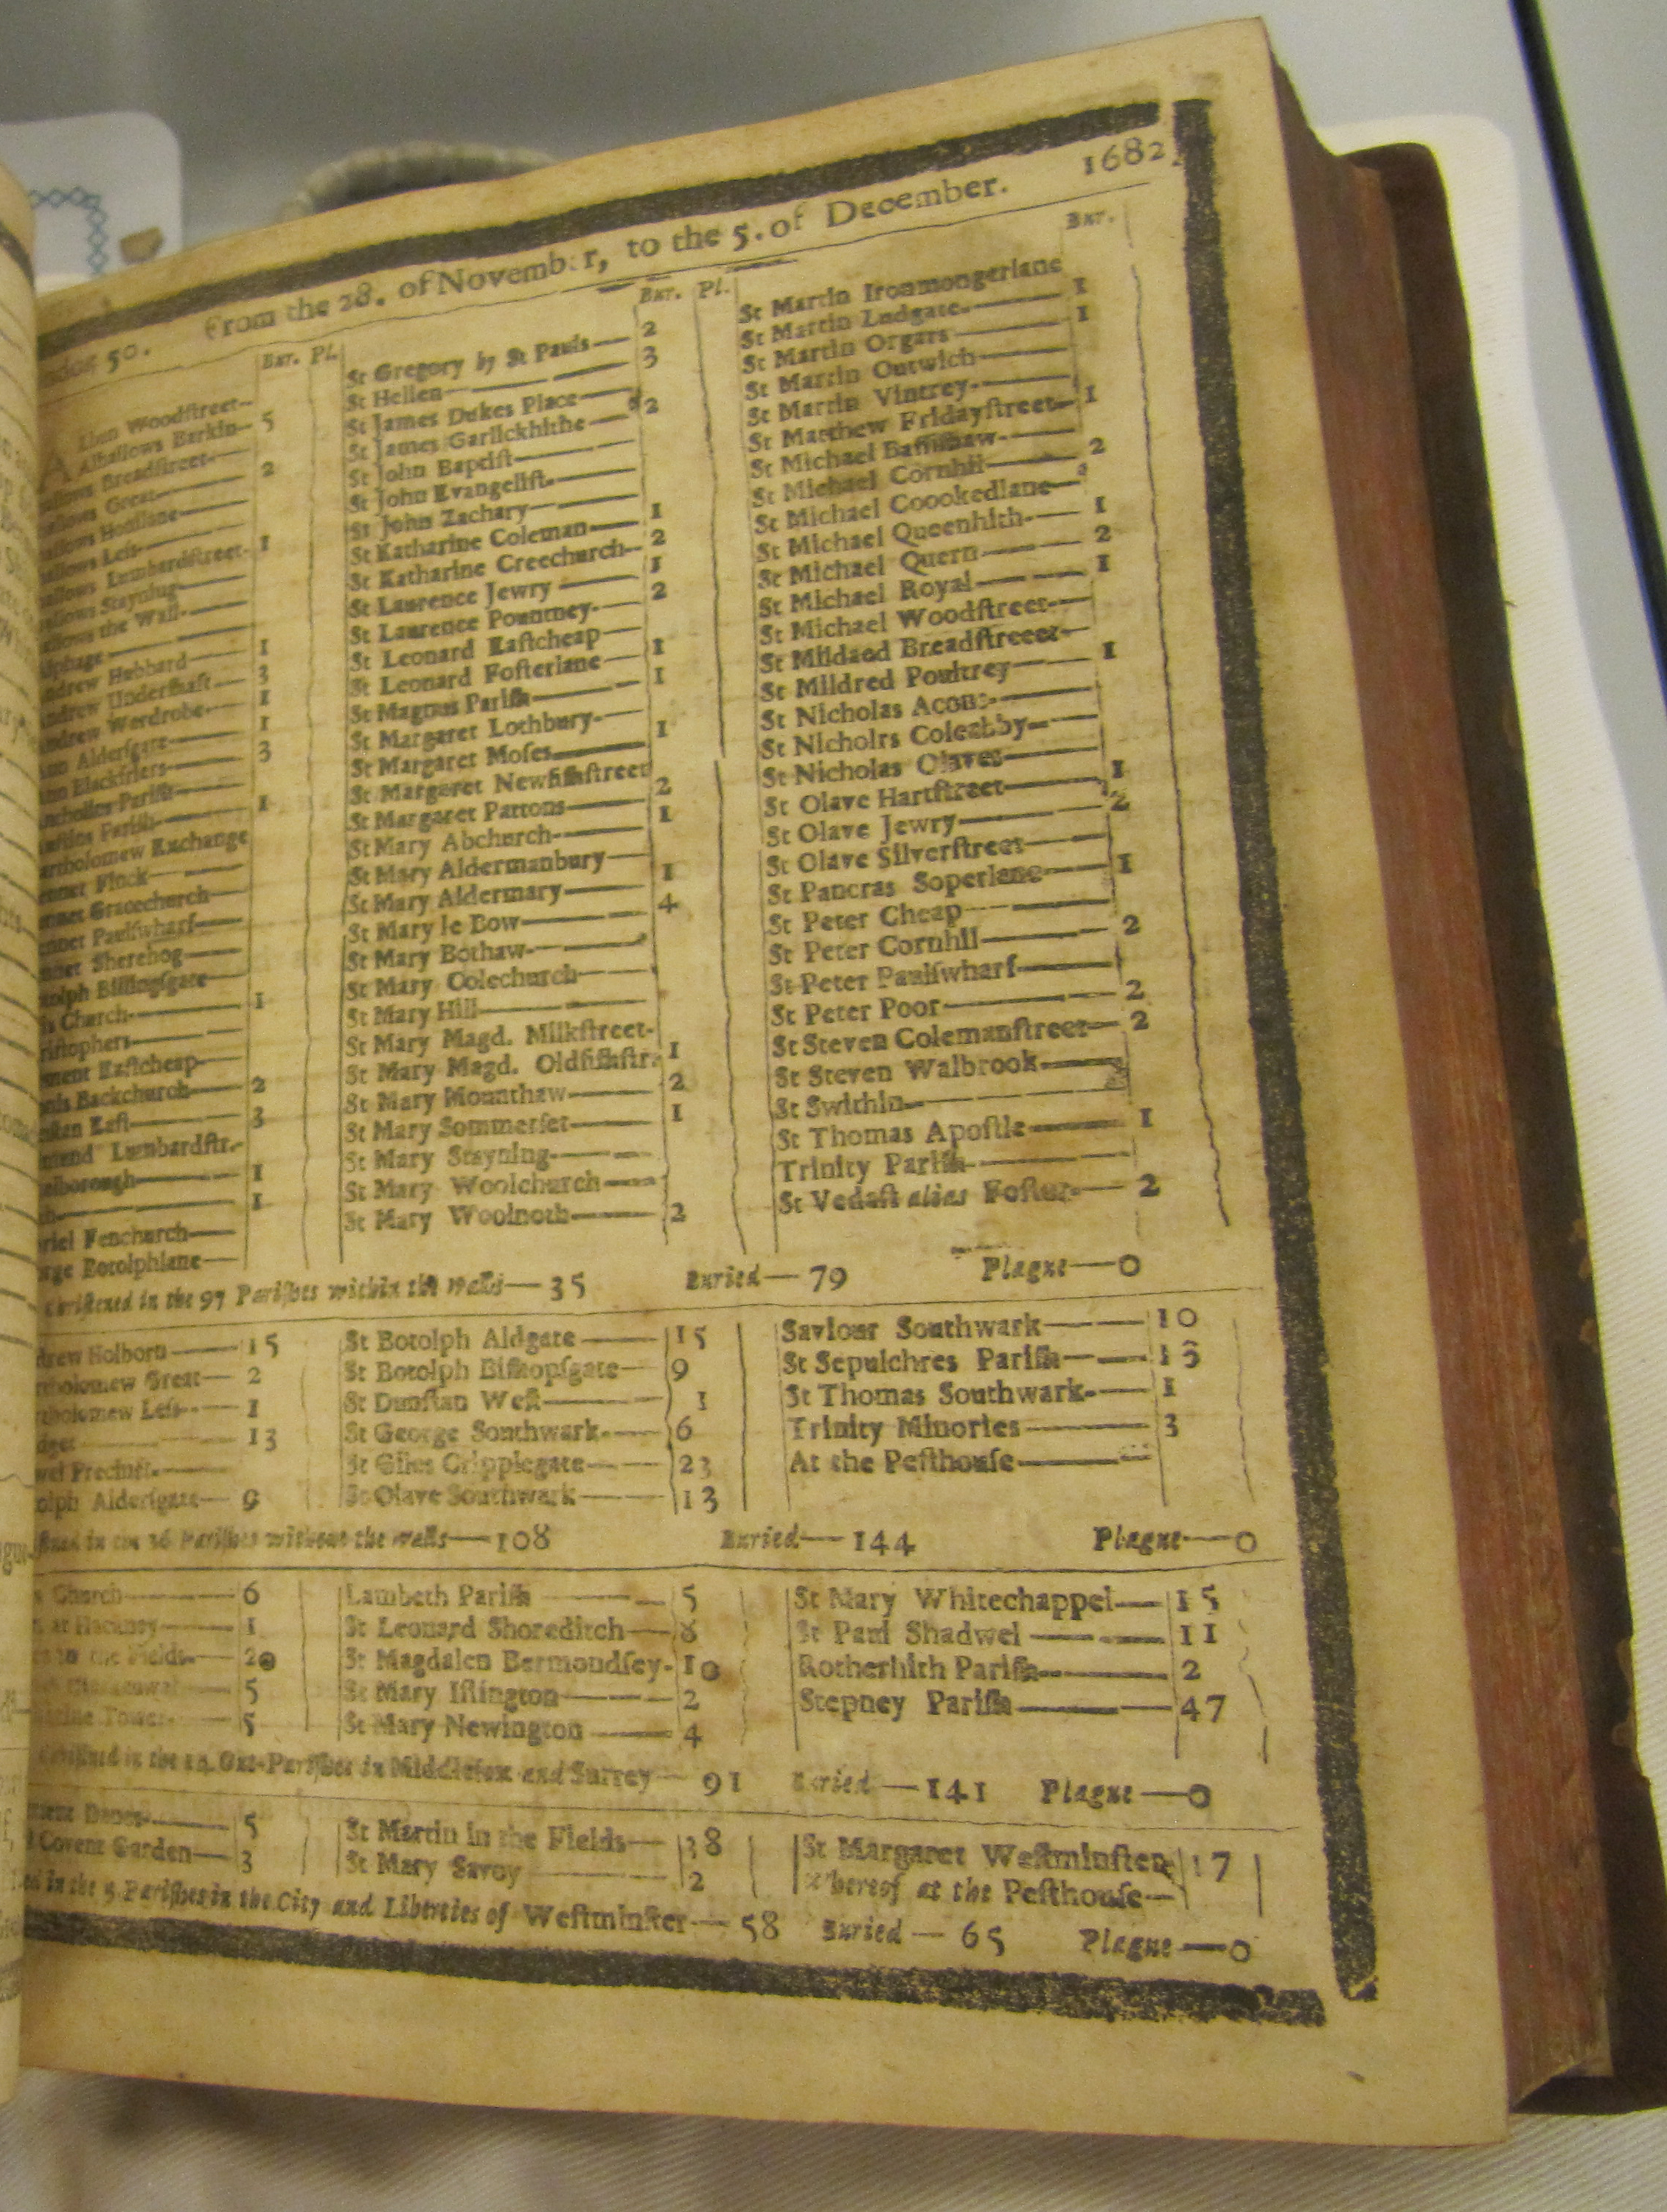 50. From the 28. of November, to the 5. of December. 1682
Bur. Pl.
Woodstreet—
Alhallows Barkin— 5
Breadstreet—
Great— 2
Honilane—
Less—
Lumbardstreet— 1
Stayning—
the Wall—
Hubbard— 1
Undershaft— 3
Wardrobe— 1
Aldersgate— 1
Blackfriers— 3
Parish—
Parish— 1
Exchange
Finck—
Gracechurch—
Paulswharf—
Sherehog—
Billingsgate—
Church— 1
Eastcheap—
Backchurch— 2
East— 3
Lumbardstr.—
1
1
Fenchurch—
Botolphlane—
Bur. Pl.
St Gregory by St Pauls— 2
St Hellen— 3
St James Dukes Place—
St James Garlickhithe— 2
St John Baptist—
St John Evangelist—
St John Zachary—
St Katharine Coleman— 1
St Katharine Creechurch— 2
St Laurence Jewry— 1
St Laurence Pountney— 2
St Leonard Eastcheap—
St Leonard Fosterlane— 1
St Magnus Parish— 1
St Margaret Lothbury—
St Margaret Moses— 1
St Margaret Newfishstreet
St Margaret Pattons— 2
St Mary Abchurch— 1
St Mary Aldermanbury—
St Mary Aldermary— 1
St Mary le Bow— 4
St Mary Bothaw—
St Mary Colechurch—
St Mary Hill—
St Mary Magd. Milkstreet-
St Mary Magd. Oldfishstr. 1
St Mary Mounthaw— 2
St Mary Sommerset— 1
St Mary Stayning—
St Mary Woolchurch—
St Mary Woolnoth— 2
Bur.
St Martin Ironmongerlane
St Martin Ludgate— 1
St Martin Orgars— 1
St Martin Outwich—
St Martin Vintrey—
St Matthew Fridaystreet— 1
St Michael Bassishaw—
St Michael Cornhil— 2
St Michael Coookedlane—
St Michael Queenhith— 1
St Michael Quern— 2
St Michael Royal— 1
St Michael Woodstreet—
St Mildaed Breadstreeet—
St Mildred Poultrey— 1
St Nicholas Acons—
St Nicholrs Coleabby—
St Nicholas Olaves—
St Olave Hartstreet— 1
St Olave Jewry— 2
St Olave Silverstreet—
St Pancras Soperlane— 1
St Peter Cheap—
St Peter Cornhil— 2
St Peter Paulswharf—
St Peter Poor— 2
St Steven Colemanstreet— 2
St Steven Walbrook—
St Swithin—
St Thomas Apostle— 1
Trinity Parish—
St Vedast alias Foster— 2
Christened in the 97 Parishes within the walls— 35 Buried— 79 Plague— 0
Holborn— 15 St Botolph Aldgate— 15 Saviour Southwark— 10
Great— 2 St Botolph Bishopsgate— 9 St Sepulchres Parish— 13
Less— 1 St Dunstan West— 1 St Thomas Southwark— 1
13 St George Southwark— 6 Trinity Minories— 3
Precinct— St Giles Cripplegate— 23 At the Pesthouse—
Aldersgate— 9 St Olave Southwark— 13
in the 16 Parishes without the walls— 108 Buried— 144 Plague— 0
Church— 6 Lambeth Parish— 5 St Mary Whitechappel— 15
at Hackney— 1 St Leonard Shoreditch— 8 St Paul Shadwel— 11
in the Fields— 20 St Magdalen Bermondsey— 10 Rotherhith Parish— 2
5 St Mary Islington— 2 Stepney Parish— 47
Tower— 5 St Mary Newington— 4
in the 14 Out-Parishes in Middlesex and Surrey— 91 Buried— 141 Plague— 0
Danes— 5 St Martin in the Fields— 38 St Margaret Westminster 17
Covent Garden— 3 St Mary Savoy— 2 Whereof at the Pesthouse—
in the 5 Parishes in the City and Liberties of Westminster— 58 Buried— 65 Plague— 0